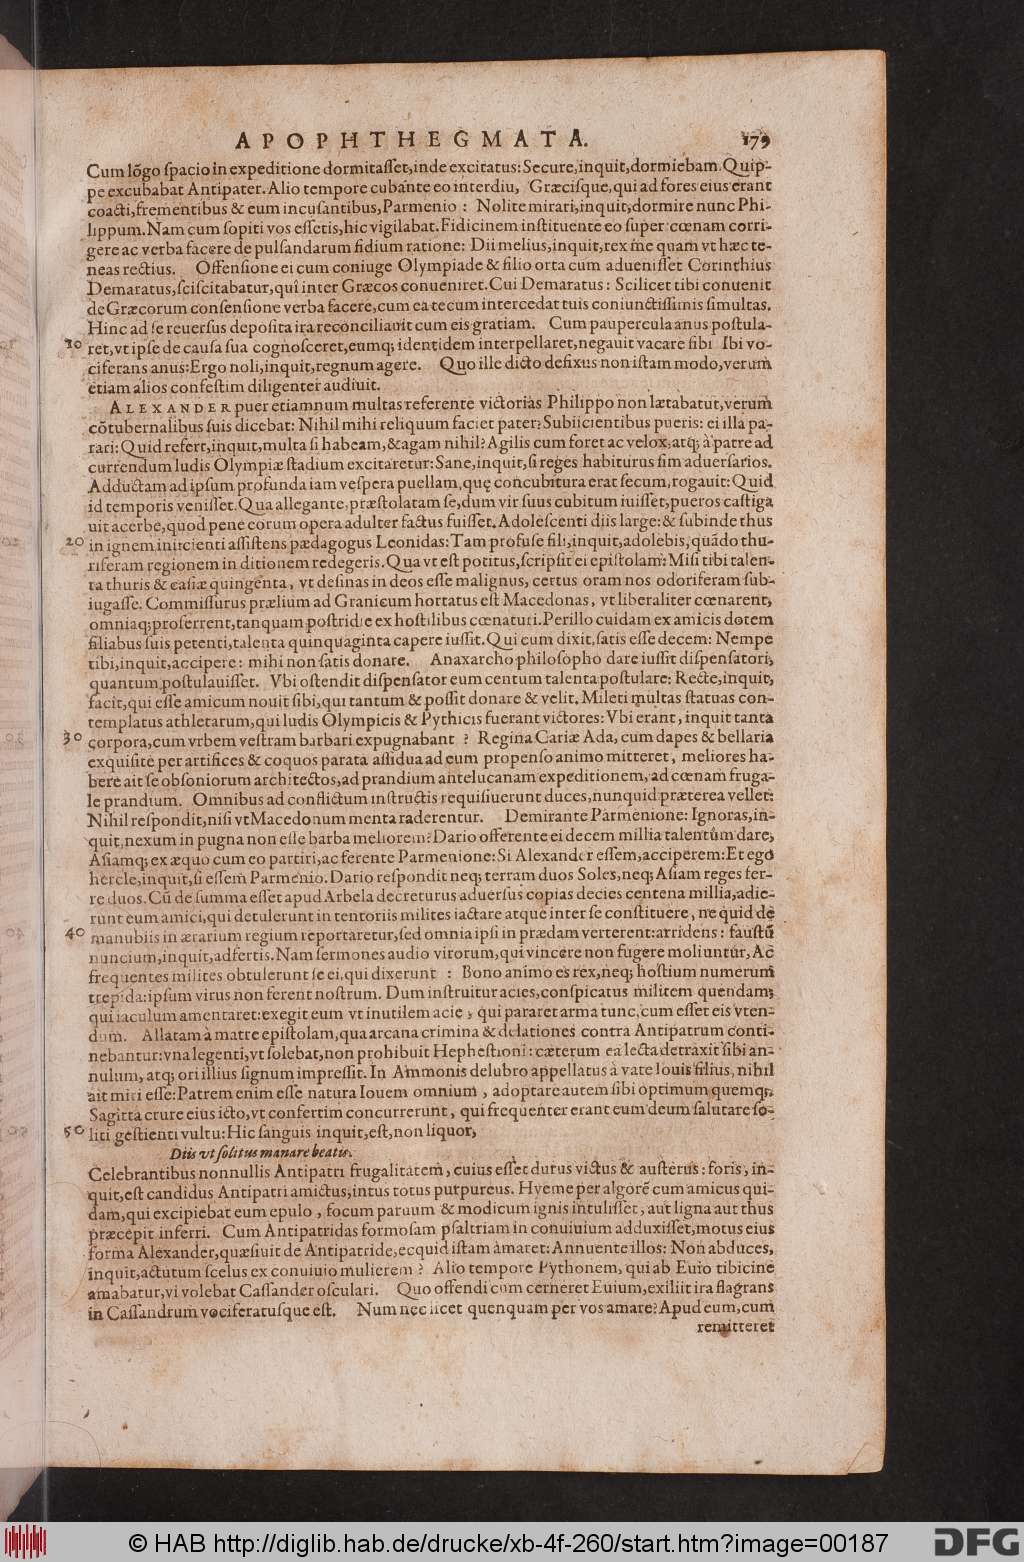 APOPHTHEGMATA. 179
Cum lōgo ſpacio in expeditione dormitaſſet, inde excitatus: Secure, inquit, dormiebam. Quip-
pe excubabat Antipater. Alio tempore cubante eo interdiu, Græciſque, qui ad fores eius erant
coacti, frementibus & eum incuſantibus, Parmenio: Nolite mirari, inquit, dormire nunc Phi-
lippum. Nam cum ſopiti vos eſſetis, hic vigilabat. Fidicinem inſtituente eo ſuper cœnam corri-
gere ac verba facere de pulſandarum fidium ratione: Dii melius, inquit, rex me quam vt hæc te-
neas rectius. Offenſione ei cum coniuge Olympiade & filio orta cum adueniſſet Corinthius
Demaratus, ſciſcitabatur, quî inter Græcos conueniret. Cui Demaratus: Scilicet tibi conuenit
de Græcorum conſenſione verba facere, cum ea tecum intercedat tuis coniunctiſſimis ſimultas.
Hinc ad ſe reuerſus depoſita ira reconciliauit cum eis gratiam. Cum paupercula anus poſtula-
10 ret, vt ipſe de cauſa ſua cognoſceret, eumq; identidem interpellaret, negauit vacare ſibi Ibi vo-
ciferans anus: Ergo noli, inquit, regnum agere. Quo ille dicto defixus non iſtam modo, verum
etiam alios confeſtim diligenter audiuit.
ALEXANDER puer etiamnum multas referente victorias Philippo non lætabatur, verum
cōtubernalibus ſuis dicebat: Nihil mihi reliquum faciet pater? Subiicientibus pueris: ei illa pa-
rari: Quid refert, inquit, multa ſi habeam, & agam nihil? Agilis cum foret ac velox, atq; à patre ad
currendum ludis Olympiæ ſtadium excitaretur: Sane, inquit, ſi reges habiturus ſim aduerſarios.
Adductam ad ipſum profunda iam veſpera puellam, quę concubitura erat ſecum, rogauit: Quid
id temporis veniſſet. Qua allegante, præſtolatam ſe, dum vir ſuus cubitum iuiſſet, pueros caſtiga
uit acerbe, quod pene eorum opera adulter factus fuiſſet. Adoleſcenti diis large: & ſubinde thus
20 in ignem iniicienti aſſiſtens pædagogus Leonidas: Tam profuſe fili, inquit, adolebis, quādo thu-
riferam regionem in ditionem redegeris. Qua vt eſt potitus, ſcripſit ei epiſtolam: Miſi tibi talen-
ta thuris & caſiæ quingenta, vt deſinas in deos eſſe malignus, certus oram nos odoriferam ſub-
iugaſſe. Commiſſurus prælium ad Granicum hortatus eſt Macedonas, vt liberaliter cœnarent,
omniaq; proferrent, tanquam poſtridie ex hoſtilibus cœnaturi. Perillo cuidam ex amicis dotem
filiabus ſuis petenti, talenta quinquaginta capere iuſſit. Qui cum dixit, ſatis eſſe decem: Nempe
tibi, inquit, accipere: mihi non ſatis donare. Anaxarcho philoſopho dare iuſſit diſpenſatori,
quantum poſtulauiſſet. Vbi oſtendit diſpenſator eum centum talenta poſtulare: Recte, inquit,
facit, qui eſſe amicum nouit ſibi, qui tantum & poſſit donare & velit. Mileti multas ſtatuas con-
templatus athletarum, qui ludis Olympicis & Pythicis fuerant victores: Vbi erant, inquit tanta
30 corpora, cum vrbem veſtram barbari expugnabant? Regina Cariæ Ada, cum dapes & bellaria
exquiſite per artifices & coquos parata aſſidua ad eum propenſo animo mitteret, meliores ha-
bere ait ſe obſoniorum architectos, ad prandium antelucanam expeditionem, ad cœnam fruga-
le prandium. Omnibus ad conflictum inſtructis requiſiuerunt duces, nunquid præterea vellet:
Nihil reſpondit, niſi vt Macedonum menta raderentur. Demirante Parmenione: Ignoras, in-
quit, nexum in pugna non eſſe barba meliorem? Dario offerente ei decem millia talentûm dare,
Aſiamq; ex æquo cum eo partiri, ac ferente Parmenione: Si Alexander eſſem, acciperem: Et ego
hercle, inquit, ſi eſſem Parmenio. Dario reſpondit neq; terram duos Soles, neq; Aſiam reges fer-
re duos. Cū de ſumma eſſet apud Arbela decreturus aduerſus copias decies centena millia, adie-
runt eum amici, qui detulerunt in tentoriis milites iactare atque inter ſe conſtituere, ne quid de
40 manubiis in ærarium regium reportaretur, ſed omnia ipſi in prædam verterent: arridens: fauſtū
nuncium, inquit, adfertis. Nam ſermones audio virorum, qui vincere non fugere moliuntur, Ac
frequentes milites obtulerunt ſe ei, qui dixerunt: Bono animo es rex, neq; hoſtium numerum
trepida: ipſum virus non ferent noſtrum. Dum inſtruitur acies, conſpicatus militem quendam,
qui iaculum amentaret: exegit eum vt inutilem acie, qui pararet arma tunc, cum eſſet eis vten-
dum. Allatam à matre epiſtolam, qua arcana crimina & delationes contra Antipatrum conti-
nebantur: vna legenti, vt ſolebat, non prohibuit Hepheſtioni: cæterum ea lecta detraxit ſibi an-
nulum, atq; ori illius ſignum impreſſit. In Ammonis delubro appellatus à vate Iouis filius, nihil
ait miri eſſe: Patrem enim eſſe natura Iouem omnium, adoptare autem ſibi optimum quemq;.
Sagitta crure eius icto, vt confertim concurrerunt, qui frequenter erant eum deum ſalutare ſo-
50 liti geſtienti vultu: Hic ſanguis inquit, eſt, non liquor,
Diis vt ſolitus manare beatis.
Celebrantibus nonnullis Antipatri frugalitatem, cuius eſſet durus victus & auſterus: foris, in-
quit, eſt candidus Antipatri amictus, intus totus purpureus. Hyeme per algorē cum amicus qui-
dam, qui excipiebat eum epulo, focum paruum & modicum ignis intuliſſet, aut ligna aut thus
præcepit inferri. Cum Antipatridas formoſam pſaltriam in conuiuium adduxiſſet, motus eius
forma Alexander, quæſiuit de Antipatride, ecquid iſtam amaret: Annuente illos: Non abduces,
inquit, actutum ſcelus ex conuiuio mulierem? Alio tempore Pythonem, qui ab Euio tibicine
amabatur, vi volebat Caſſander oſculari. Quo offendi cum cerneret Euium, exiliit ira flagrans
in Caſſandrum vociferatuſque eſt. Num nec licet quenquam per vos amare? Apud eum, cum
remitteret
© HAB http://diglib.hab.de/drucke/xb-4f-260/start.htm?image=00187
DFG